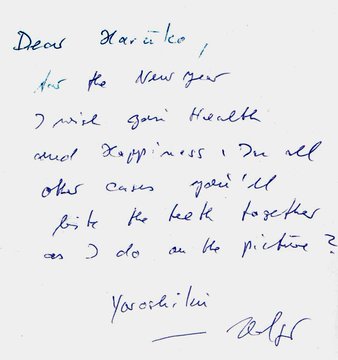 Dear Haruko,
for the New Year
I wish you Health
and Happiness, In all
other cases you'll
bite the teeth together
as I do on the picture?
Yoroshiku